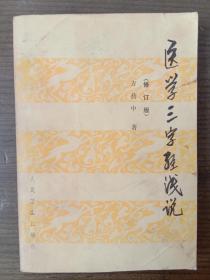 医学三字经浅说
(修订版)
方药中 著
人民卫生出版社